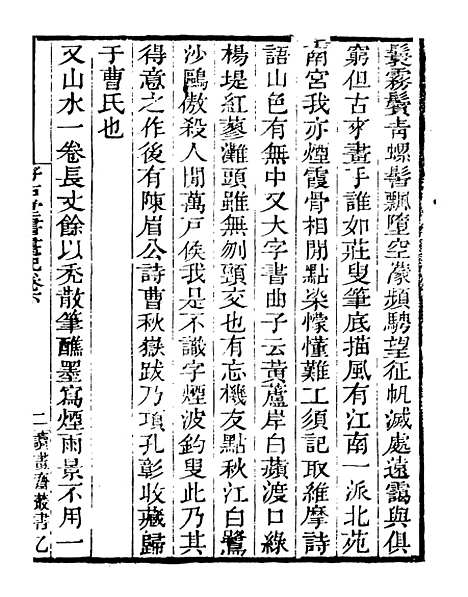 鬟霧鬢青螺髻飄墮空濛頻騁望征帆滅處遠靄與俱
窮但古來畫手誰如莊叟筆底描風有江南一派北苑
南宮我亦煙霞骨相閒點染懞懂難工須記取維摩詩
語山色有無中又大字書曲子云黃蘆岸白蘋渡口綠
楊堤紅蓼灘頭雖無刎頸交也有忘機友點秋江白鷺
沙鷗傲殺人間萬戶侯我是不識字煙波釣叟此乃其
得意之作後有陳眉公詩曹秋嶽跋乃項孔彰收藏歸
于曹氏也
又山水一卷長丈餘以禿散筆醮墨寫煙雨景不用一
好古堂書畫記卷
二 讀畫齋叢書 乙